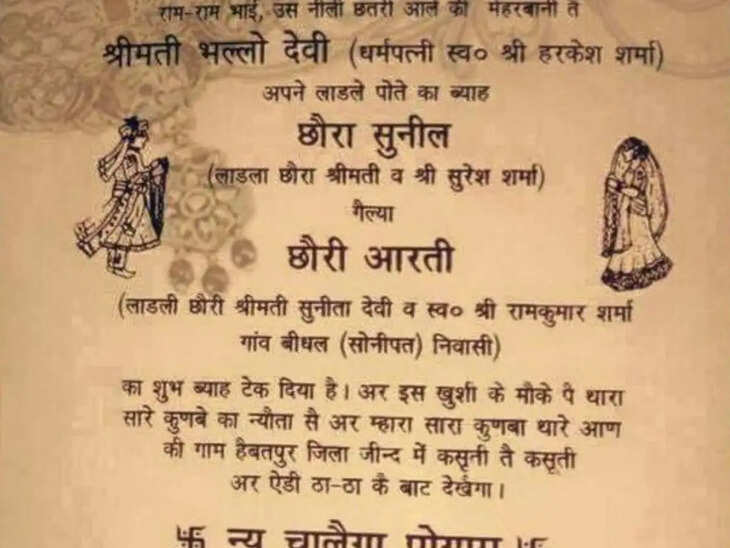 राम-राम भाई, उस नीली छतरी आले की मेहरबानी तै
श्रीमती भल्लो देवी (धर्मपत्नी स्व० श्री हरकेश शर्मा)
अपने लाडले पोते का ब्याह
छौरा सुनील
(लाडला छौरा श्रीमती व श्री सुरेश शर्मा)
गैल्या
छौरी आरती
(लाडली छौरी श्रीमती सुनीता देवी व स्व० श्री रामकुमार शर्मा
गांव बीधल (सोनीपत) निवासी)
का शुभ ब्याह टेक दिया है। अर इस खुशी के मौके पै थारा
सारे कुणबे का न्यौता सै अर म्हारा सारा कुणबा थारे आण
की गाम हैबतपुर जिला जीन्द में कसूत्ती तै कसूती
अर ऐडी ठा-ठा कै बाट देखेगा।
卐 न्यू चालैगा प्रोग्राम 卐